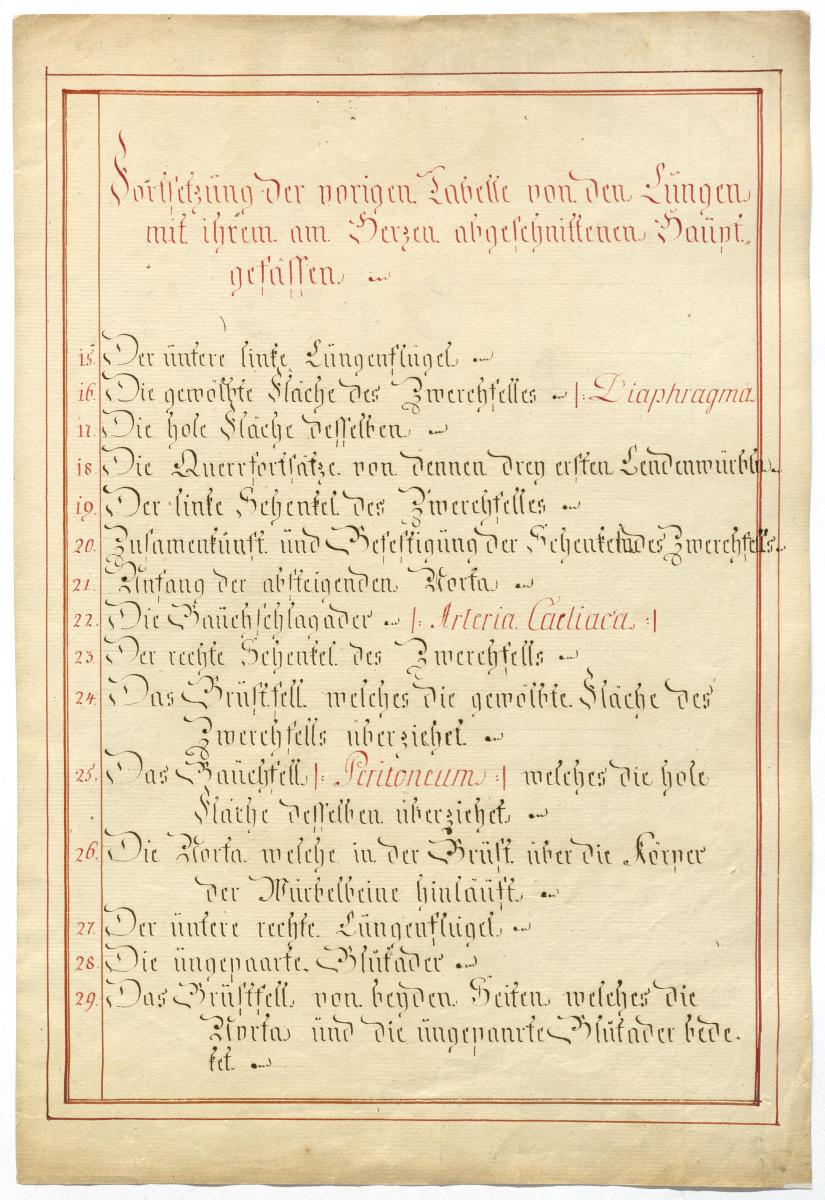 Fortsetzung der vorigen Tabelle von den Lungen
mit ihrem am Herzen abgeschnittenen Haupt-
gefässen.
15. Der untere linke Lungenflügel
16. Die gewölbte Fläche des Zwerchfelles |: Diaphragma
17. Die hole Fläche desselben
18. Die Querrfortsätze von dennen drey ersten Lendenwürbln
19. Der linke Schenkel des Zwerchfelles
20. Zusamenkunft und Befestigung der Schenkeln des Zwerchfells
21. Anfang der absteigenden Aorta
22. Die Bauchschlagader |: Arteria Caeliaca :|
23. Der rechte Schenkel des Zwerchfells
24. Das Brustfell welches die gewölbte Fläche des
Zwerchfells überziehet
25. Das Bauchfell |: Peritoneum :| welches die hole
Fläche desselben überziehet
26. Die Aorta welche in der Brust über die Körper
der Würbelbeine hinläuft
27. Der untere rechte Lungenflügel
28. Die ungepaarte Blutader
29. Das Brustfell von beyden Seiten welches die
Aorta und die ungepaarte Blutader bede-
ket